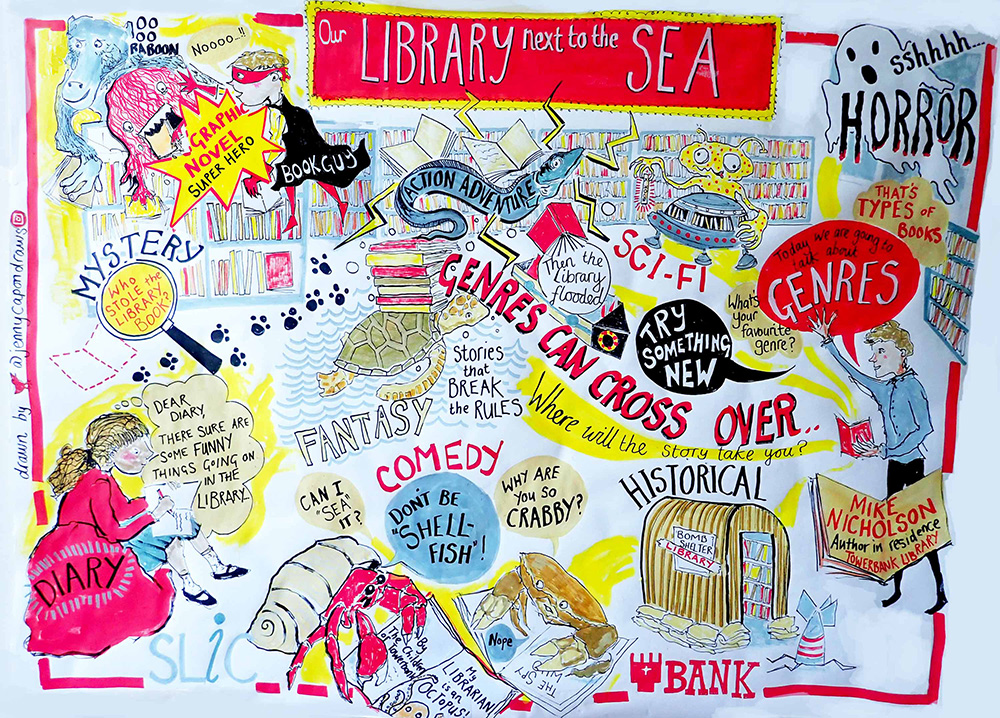 Our LIBRARY next to the SEA
100
100
BABOON
NOOOO..!!
GRAPHIC
NOVEL
SUPER HERO
BOOK GUY
ACTION ADVENTURE
SCI-FI
sshhhh...
HORROR
THAT'S
TYPES OF
BOOKS
Today we are going to
talk about
GENRES
What's
your
favourite
genre?
MYSTERY
WHO
STOLE the
LIBRARY
BOOK?
Then the
library
flooded
GENRES CAN CROSS OVER..
TRY
SOMETHING
NEW
Stories
that
BREAK
the RULES
FANTASY
Where will the story take you?
drawn by @jennycapondraws
DEAR
DIARY,
THERE SURE ARE
SOME FUNNY
THINGS GOING ON
IN THE
LIBRARY.
DIARY
COMEDY
CAN I
"SEA"
IT?
DON'T BE
"SHELL-
FISH"!
WHY ARE
YOU SO
CRABBY?
Nope
By
The Children
of Towerbank
MY
LIBRARIAN
is an
OCTOPUS!
HISTORICAL
BOMB
SHELTER
LIBRARY
MIKE
NICHOLSON
Author in residence
TOWERBANK LIBRARY
SLiC
BANK